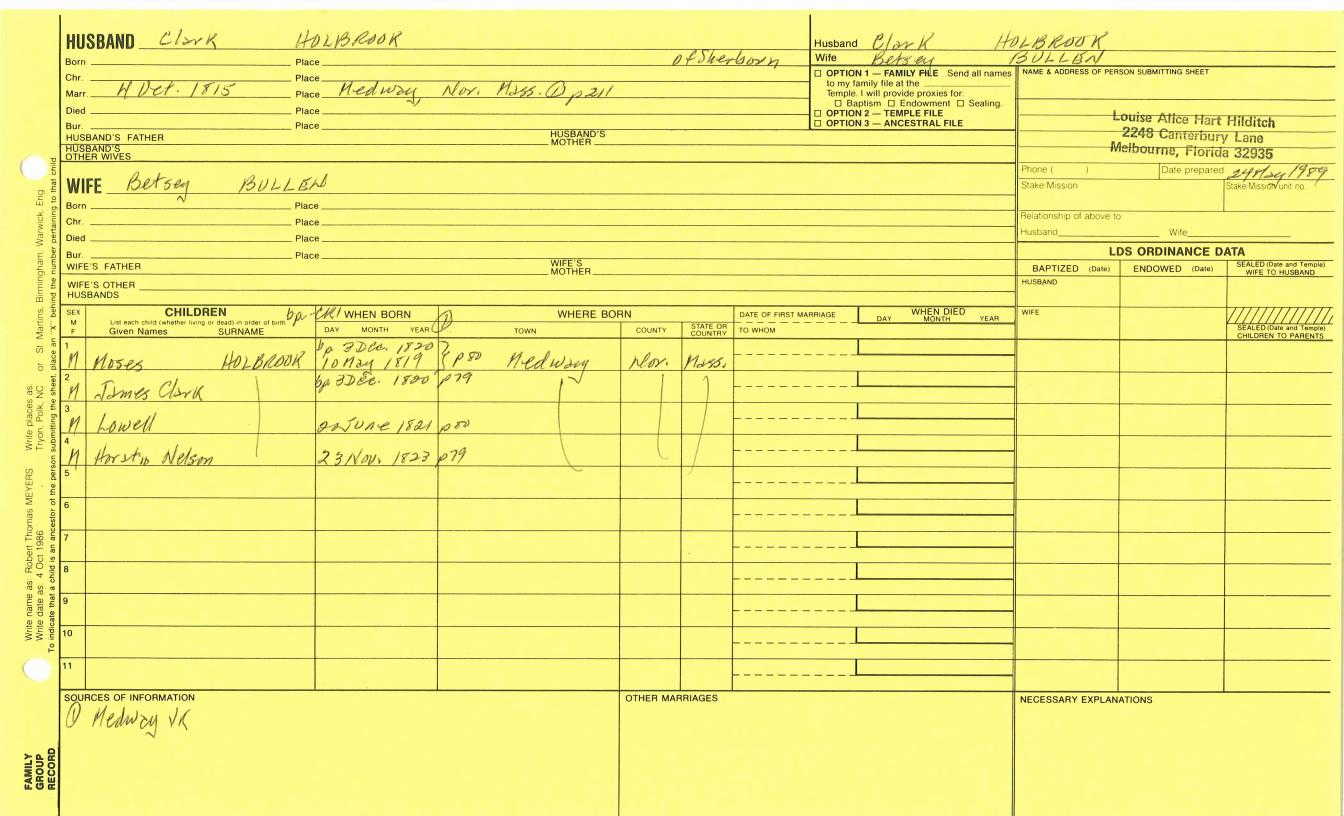 HUSBAND Clark HOLBROOK
Born Place of Sherborn
Chr. Place
Marr. Oct. 1815 Place Medway, Nor. Mass. ① p211
Died Place
Bur. Place
HUSBAND'S FATHER HUSBAND'S MOTHER
HUSBAND'S OTHER WIVES
WIFE Betsey BULLEN
Born Place
Chr. Place
Died Place
Bur. Place
WIFE'S FATHER WIFE'S MOTHER
WIFE'S OTHER HUSBANDS
Husband Clark HOLBROOK
Wife Betsey BULLEN
☐ OPTION 1 — FAMILY FILE Send all names
to my family file at the
Temple. I will provide proxies for:
☐ Baptism ☐ Endowment ☐ Sealing.
☐ OPTION 2 — TEMPLE FILE
☐ OPTION 3 — ANCESTRAL FILE
NAME & ADDRESS OF PERSON SUBMITTING SHEET
Louise Alice Hart Hilditch
2248 Canterbury Lane
Melbourne, Florida 32935
Phone ( ) Date prepared 24 May 1989
Stake Mission Stake Mission unit no.
Relationship of above to
Husband Wife
LDS ORDINANCE DATA
BAPTIZED (Date) ENDOWED (Date) SEALED (Date and Temple) WIFE TO HUSBAND
HUSBAND
WIFE
SEALED (Date and Temple) CHILDREN TO PARENTS
SEX M F CHILDREN WHEN BORN WHERE BORN DATE OF FIRST MARRIAGE WHEN DIED
List each child (whether living or dead) in order of birth bp ①
Given Names SURNAME DAY MONTH YEAR TOWN COUNTY STATE OR COUNTRY TO WHOM DAY MONTH YEAR
1 bp 3 Dec. 1820
M Moses HOLBROOK 10 May 1819 } p80 Medway Nor. Mass.
2 bp 3 Dec. 1820 p79
M James Clark
3
M Lowell June 1821 p80
4
M Nelson 23 Nov. 1823 p79
5
6
7
8
9
10
11
SOURCES OF INFORMATION OTHER MARRIAGES NECESSARY EXPLANATIONS
① Medway VR
Write name as: Robert Thomas MEYERS Write places as: Tryon, Polk, NC or St. Martins, Birmingham, Warwick, Eng.
Write date as: 4 Oct 1986
To indicate that a child is an ancestor of the person submitting the sheet, place an "X" behind the number pertaining to that child.
FAMILY
GROUP
RECORD